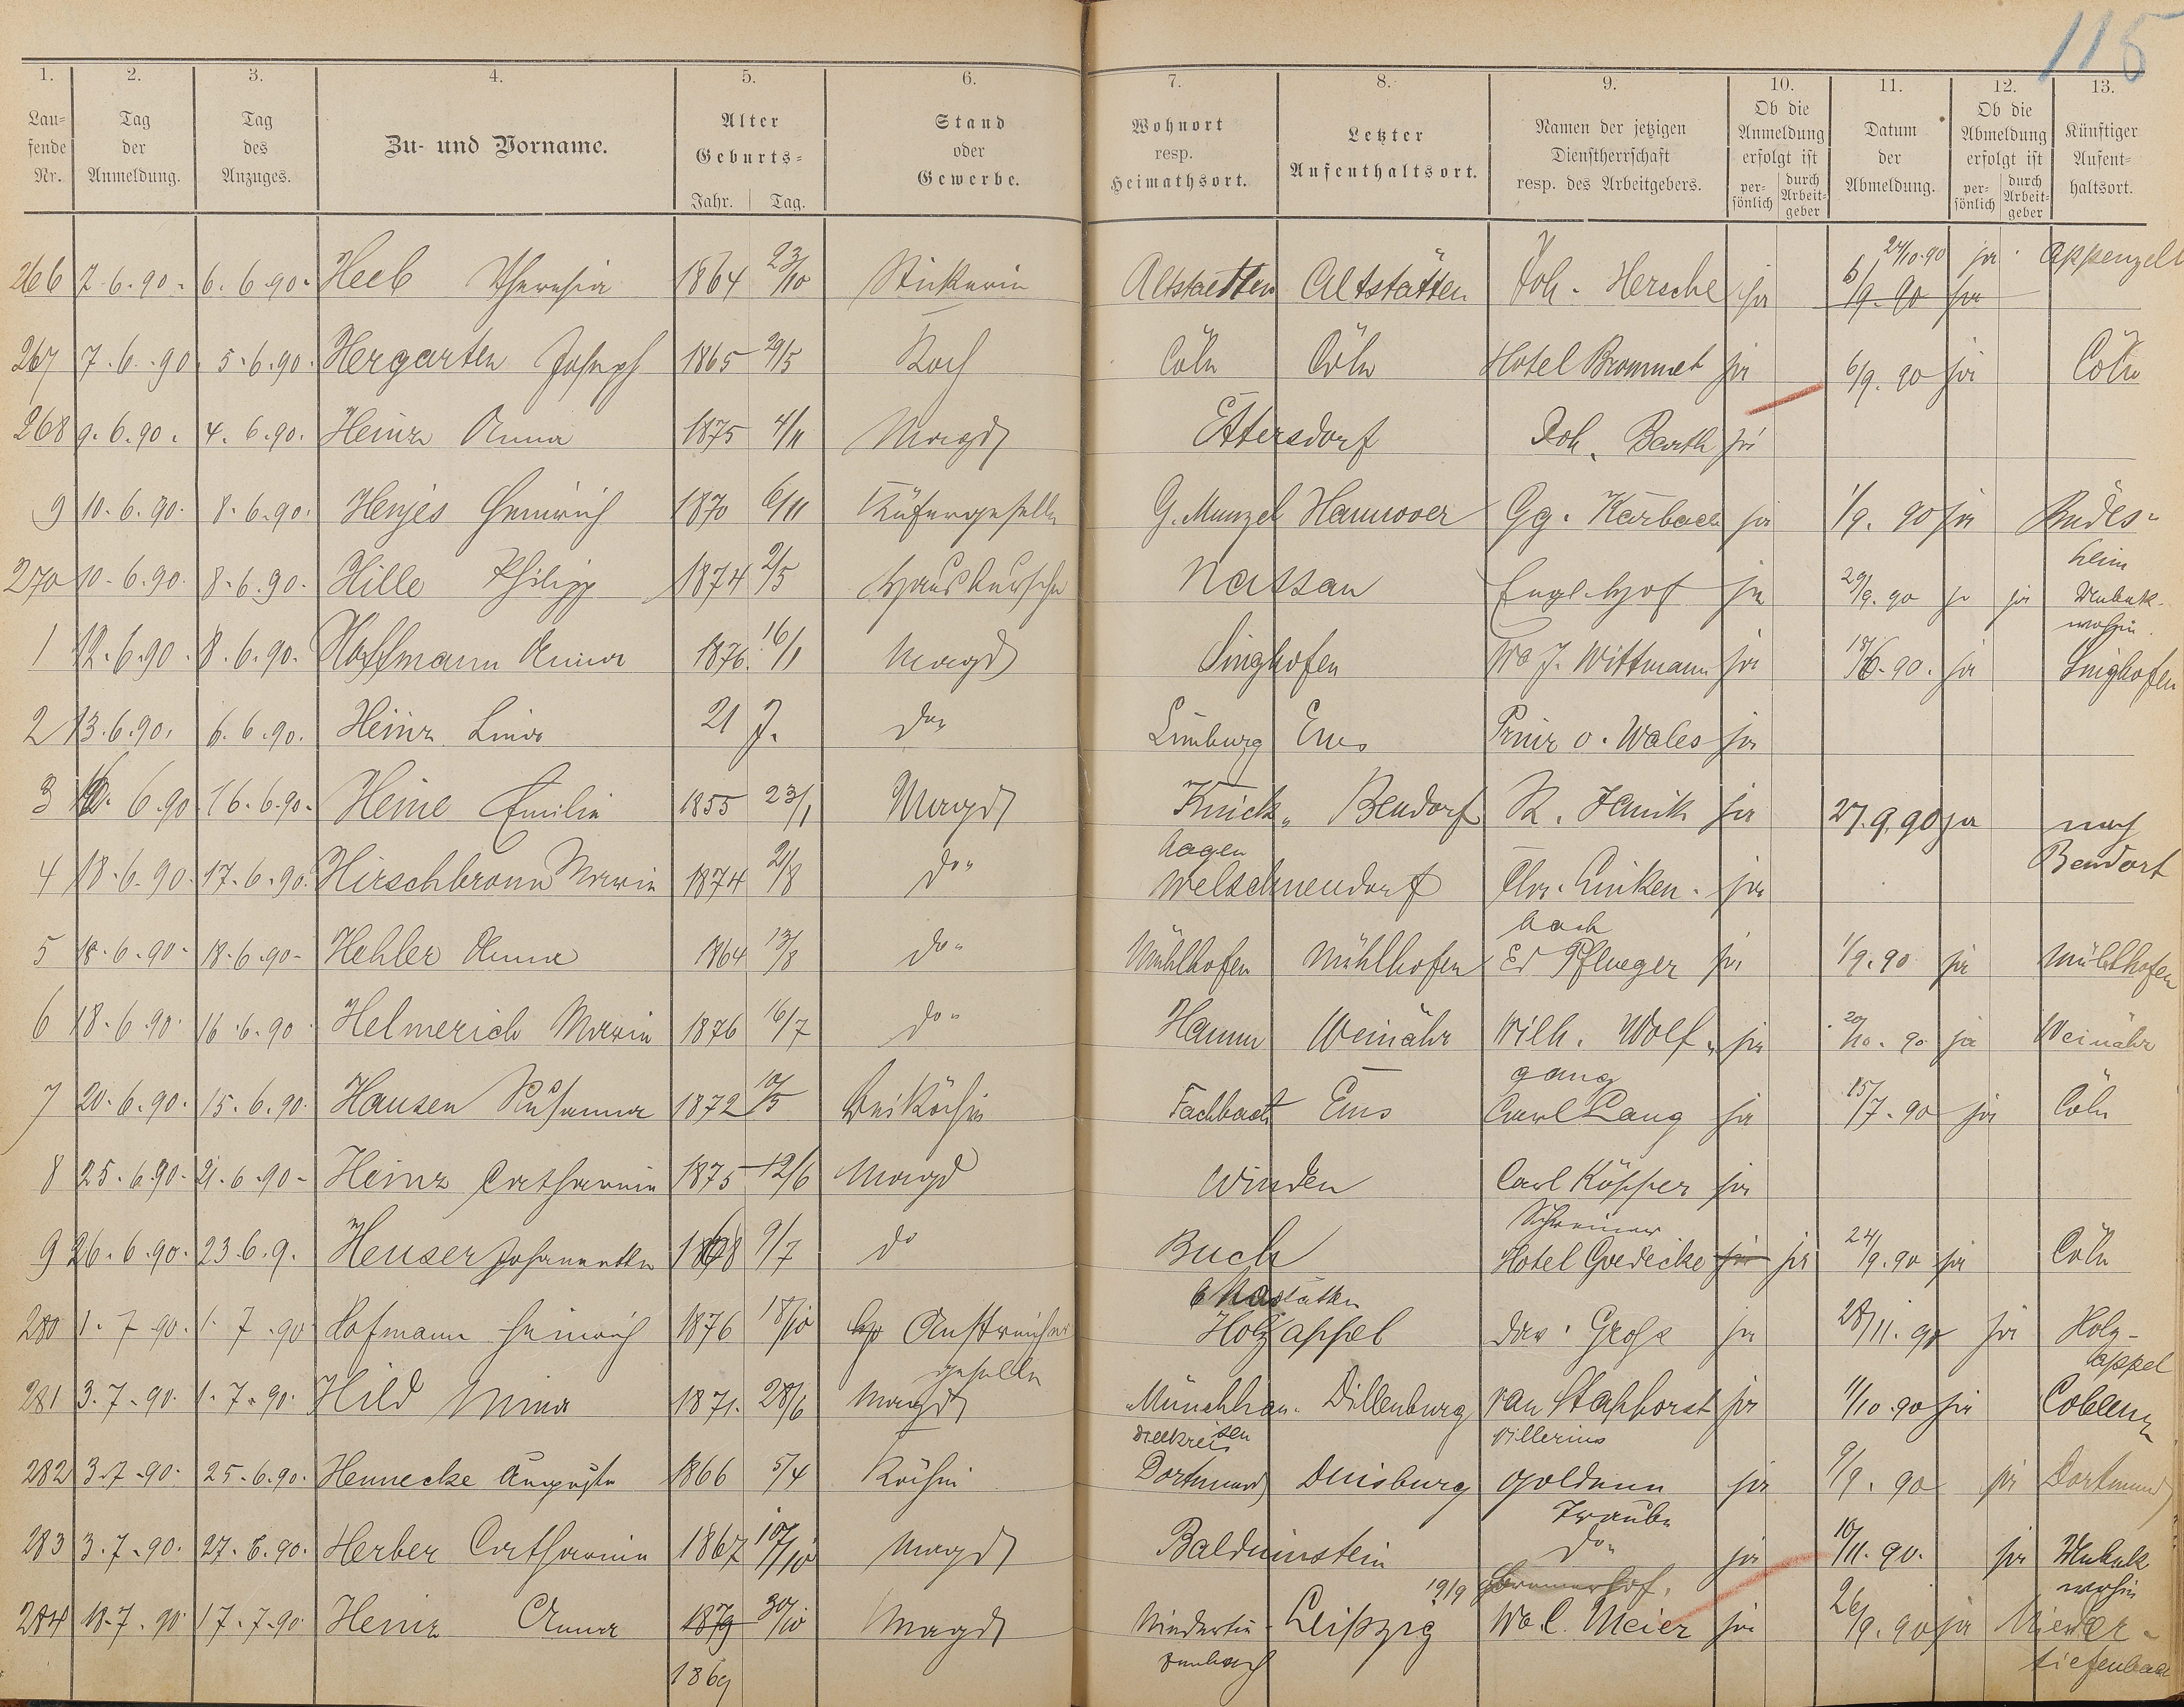 115
1. 2. 3. 4. 5. 6. 7. 8. 9. 10. 11. 12. 13.
Lau=
fende
Nr.
Tag
der
Anmeldung.
Tag
des
Anzuges.
Zu- und Vorname.
Alter
Geburts=
Jahr. Tag.
Stand
oder
Gewerbe.
Wohnort
resp.
Heimathsort.
Letzter
Aufenthaltsort.
Namen der jetzigen
Dienstherrschaft
resp. des Arbeitgebers.
Ob die
Anmeldung
erfolgt ist
per-
sönlich
durch
Arbeit-
geber
Datum
der
Abmeldung.
Ob die
Abmeldung
erfolgt ist
per-
sönlich
durch
Arbeit-
geber
Künftiger
Aufent=
haltsort.
24/10.90 ja Appenzell
266 7.6.90. 6.6.90. Heeb Theresia 1864 23/10 Stickerin Altstaetten Altstätten Joh. Hersche ja 6/9.90 ja
267 7.6.90 5.6.90. Hergarten Joseph 1865 29/5 Koch Cöln Cöln Hotel Brommet ja 6/9.90 ja Cöln
268 9.6.90. 4.6.90. Heinz Anna 1875 4/11 Magd Ettersdorf Joh. Barth ja
9 10.6.90. 8.6.90. Henjes Heinrich 1870 6/11 Küfergeselle G. Munzel Hannover Gg. Karbach ja 1/9.90 ja Rüdes-
heim
270 10.6.90. 8.6.90. Hille Philipp 1874 2/5 Hausbursche Nassau Engl. Hof ja 29/9.90 ja ja Unbek.
wohin.
1 12.6.90. 8.6.90. Hoffmann Anna 1876. 16/1 Magd Singhofen Wwe J. Wittmann ja 18/6.90. ja Singhofen
2 13.6.90. 6.6.90. Heinz Lina 21 J. do" Limburg Ems Prinz o. Wales ja
3 16.6.90 16.6.90. Heine Emilie 1855 23/1 Magd Knick" Bendorf R. Jenik ja 27.9.90 ja nach
hagen Bendorf
4 18.6.90. 17.6.90. Hirschbronn Maria 1874 2/8 do" Welschneudorf Chr. Linken- ja
bach
5 18.6.90. 18.6.90. Hehler Anna 1864 13/8 do" Mühlhofen Mühlhofen Ed Pflueger ja 1/9.90 ja Mühlhofen
6 18.6.90. 16.6.90 Helmerich Maria 1876 16/7 do" Hamm Weinähr Wilh. Wolf" ja 20/10.90 ja Weinähr
gang
7 20.6.90. 15.6.90. Hausen Susanna 1872 10/5 Beiköchin Fachbach Ems Carl Lang ja 15/7.90 ja Cöln
8 25.6.90. 21.6.90. Heinz Catharina 1875 12/6 Magd Winden Carl Köpper ja
Schreiner
9 26.6.90. 23.6.9. Heuser Johannetta 1868 9/7 do Buch Hotel Goedecke ja ja 24/9.90 ja Cöln
b Nastätten
280 1.7.90. 1.7.90 Hofmann Heinrich 1876 18/10 Anstreicher Holzappel Dav. Groß ja 28/11.90 ja Holz-
geselle appel
281 3.7.90. 1.7.90. Hild Mina 1871. 28/6 Magd Münchhau- Dillenburg van Staphorst ja 11/10.90 ja Coblenz
sen
Dillkreis Villerius
282 3.7.90. 25.6.90. Hennecke Auguste 1866 5/4 Köchin Dortmund Duisburg Goldene ja 9/9.90 ja Dortmund
Traube
283 3.7.90. 27.6.90. Herber Catharina 1867 10/10 Magd Balduinstein do" ja 10/11.90. ja Unbek
wohin
19/9
284 18.7.90 17.7.90 Heinz Anna 1879 30/10 Magd Niedertie- Leipzig Wwe C. Meier ja 26/9.90 ja Nieder-
1869 fenbach tiefenbach